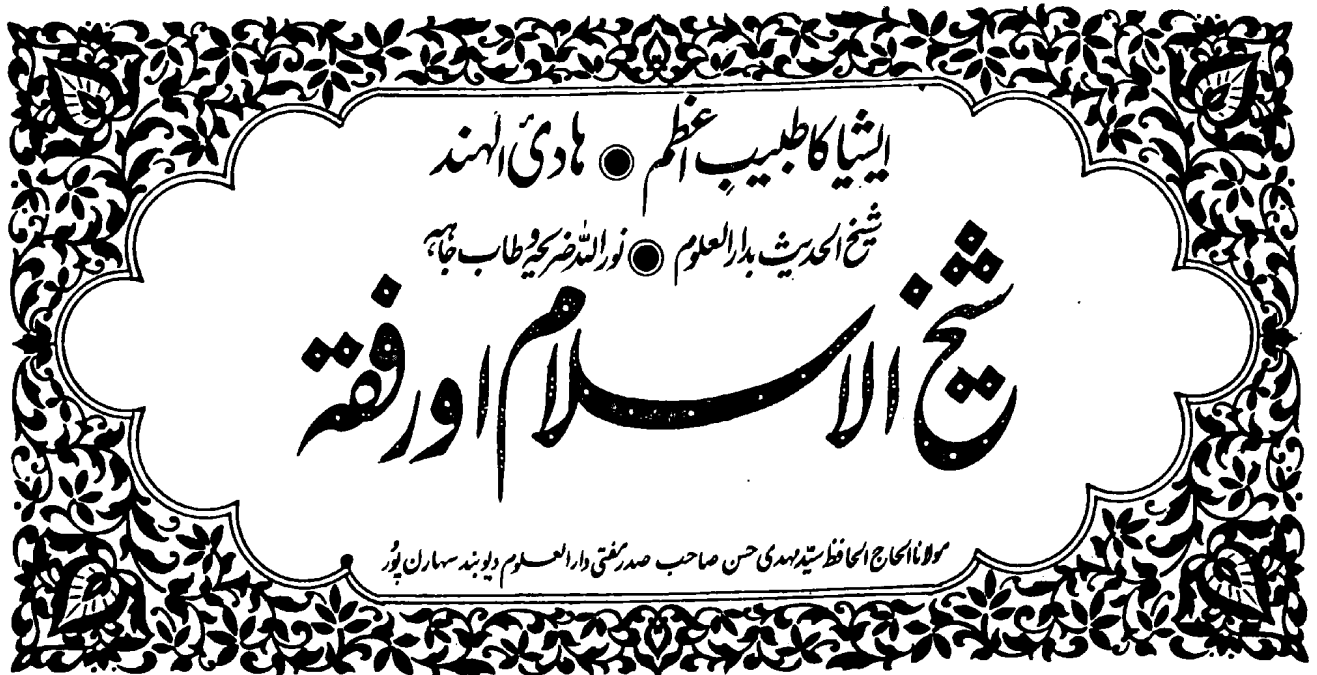 ایشیا کا طبیبِ اعظم ● ہادئ الہند
شیخ الحدیث بدار العلوم ● نور اللہ ضریحہٗ و طاب جاہہ
شیخ الاسلام اور فقہ
مولانا الحاج الحافظ سیّد مہدی حسن صاحب صدر مفتی دار العلوم دیوبند سہارن پُور